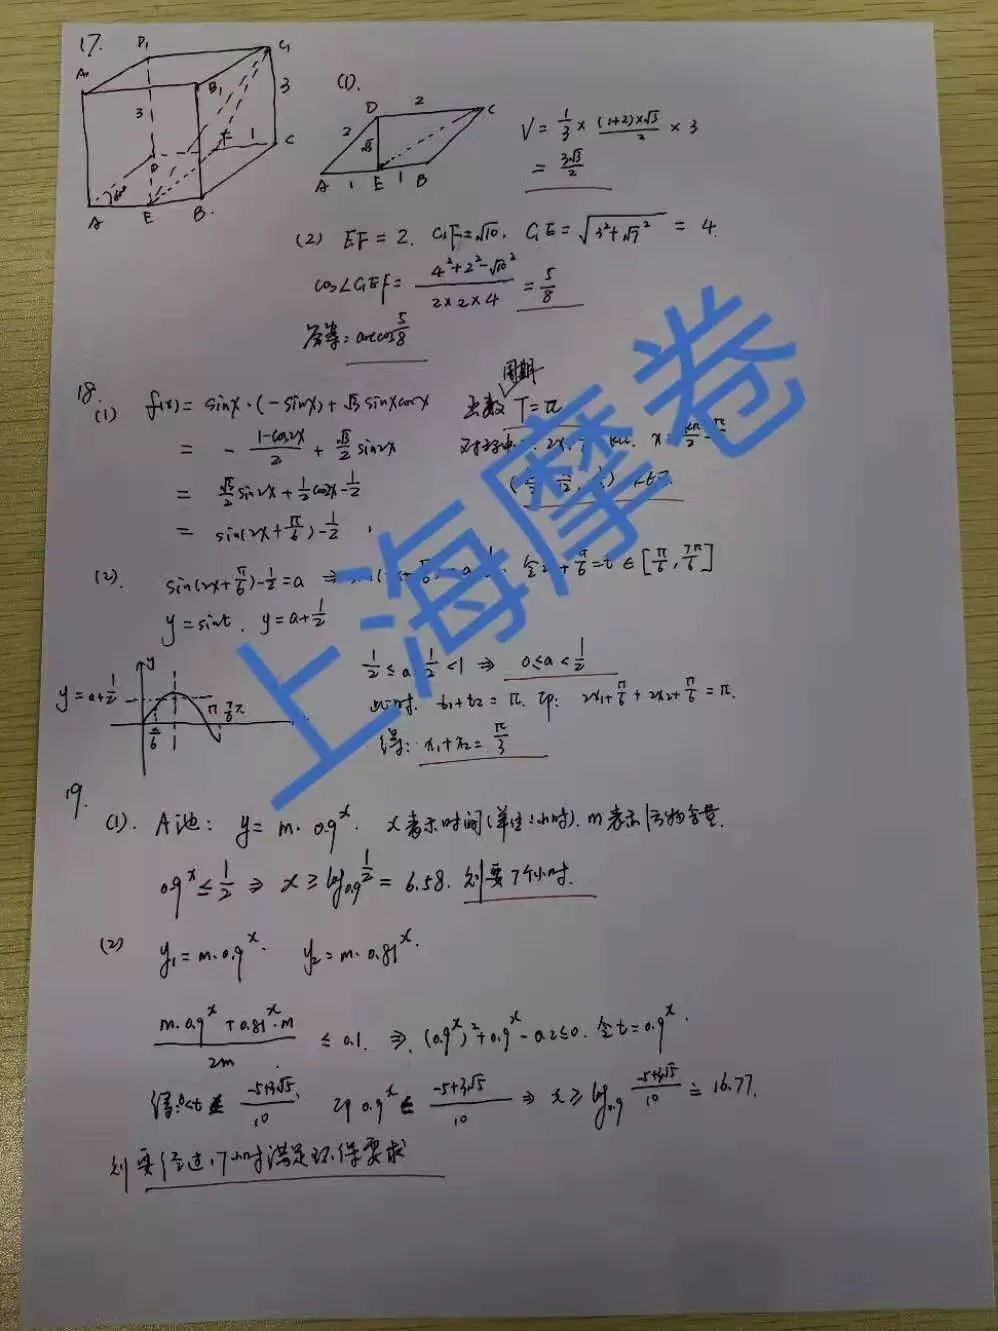 17.
D₁
C₁
A₁
B₁
3
3
D
F
1
C
60°
A
E
B
(1).
D
2
C
2
√3
A
1
E
1
B
V = 1/3 × (1+2)×√3/2 × 3
= 3√3/2
(2) EF = 2. C₁F = √10, C₁E = √(3²+√7²) = 4.
cos∠C₁EF = (4²+2²-√10²)/(2×2×4) = 5/8
arccos 5/8
18.
(1) f(x) = sinx·(-sinx) + √3 sinxcosx
周期
函数 T = π
= - (1-cos2x)/2 + √3/2 sin2x
= √3/2 sin2x + 1/2 cos2x - 1/2
= sin(2x + π/6) - 1/2
(2). sin(2x + π/6) - 1/2 = a ⇒
= t ∈ [π/6, 7π/6]
y = sint. y = a + 1/2
y
y = a + 1/2
π/6
π
7/6 π
1/2 ≤ a 1/2 < 1 ⇒ 0 ≤ a < 1/2
此时. t₁+t₂ = π. 即: 2x₁ + π/6 + 2x₂ + π/6 = π.
得: x₁+x₂ = π/3
19.
(1). A池: y = m·0.9ˣ. x表示时间(单位:小时). m表示污物含量.
0.9ˣ ≤ 1/2 ⇒ x ≥ log₀.₉ 1/2 = 6.58. 则要7个小时.
(2) y₁ = m·0.9ˣ. y₂ = m·0.81ˣ.
(m·0.9ˣ + 0.81ˣ·m)/2m ≤ 0.1. ⇒ (0.9ˣ)² + 0.9ˣ - 0.2 ≤ 0. 令t = 0.9ˣ.
得: 0<t ≤ (-5+3√5)/10, 即 0.9ˣ ≤ (-5+3√5)/10 ⇒ x ≥ log₀.₉ (-5+3√5)/10 ≐ 16.77.
则要经过17小时满足环保要求
上海摩卷